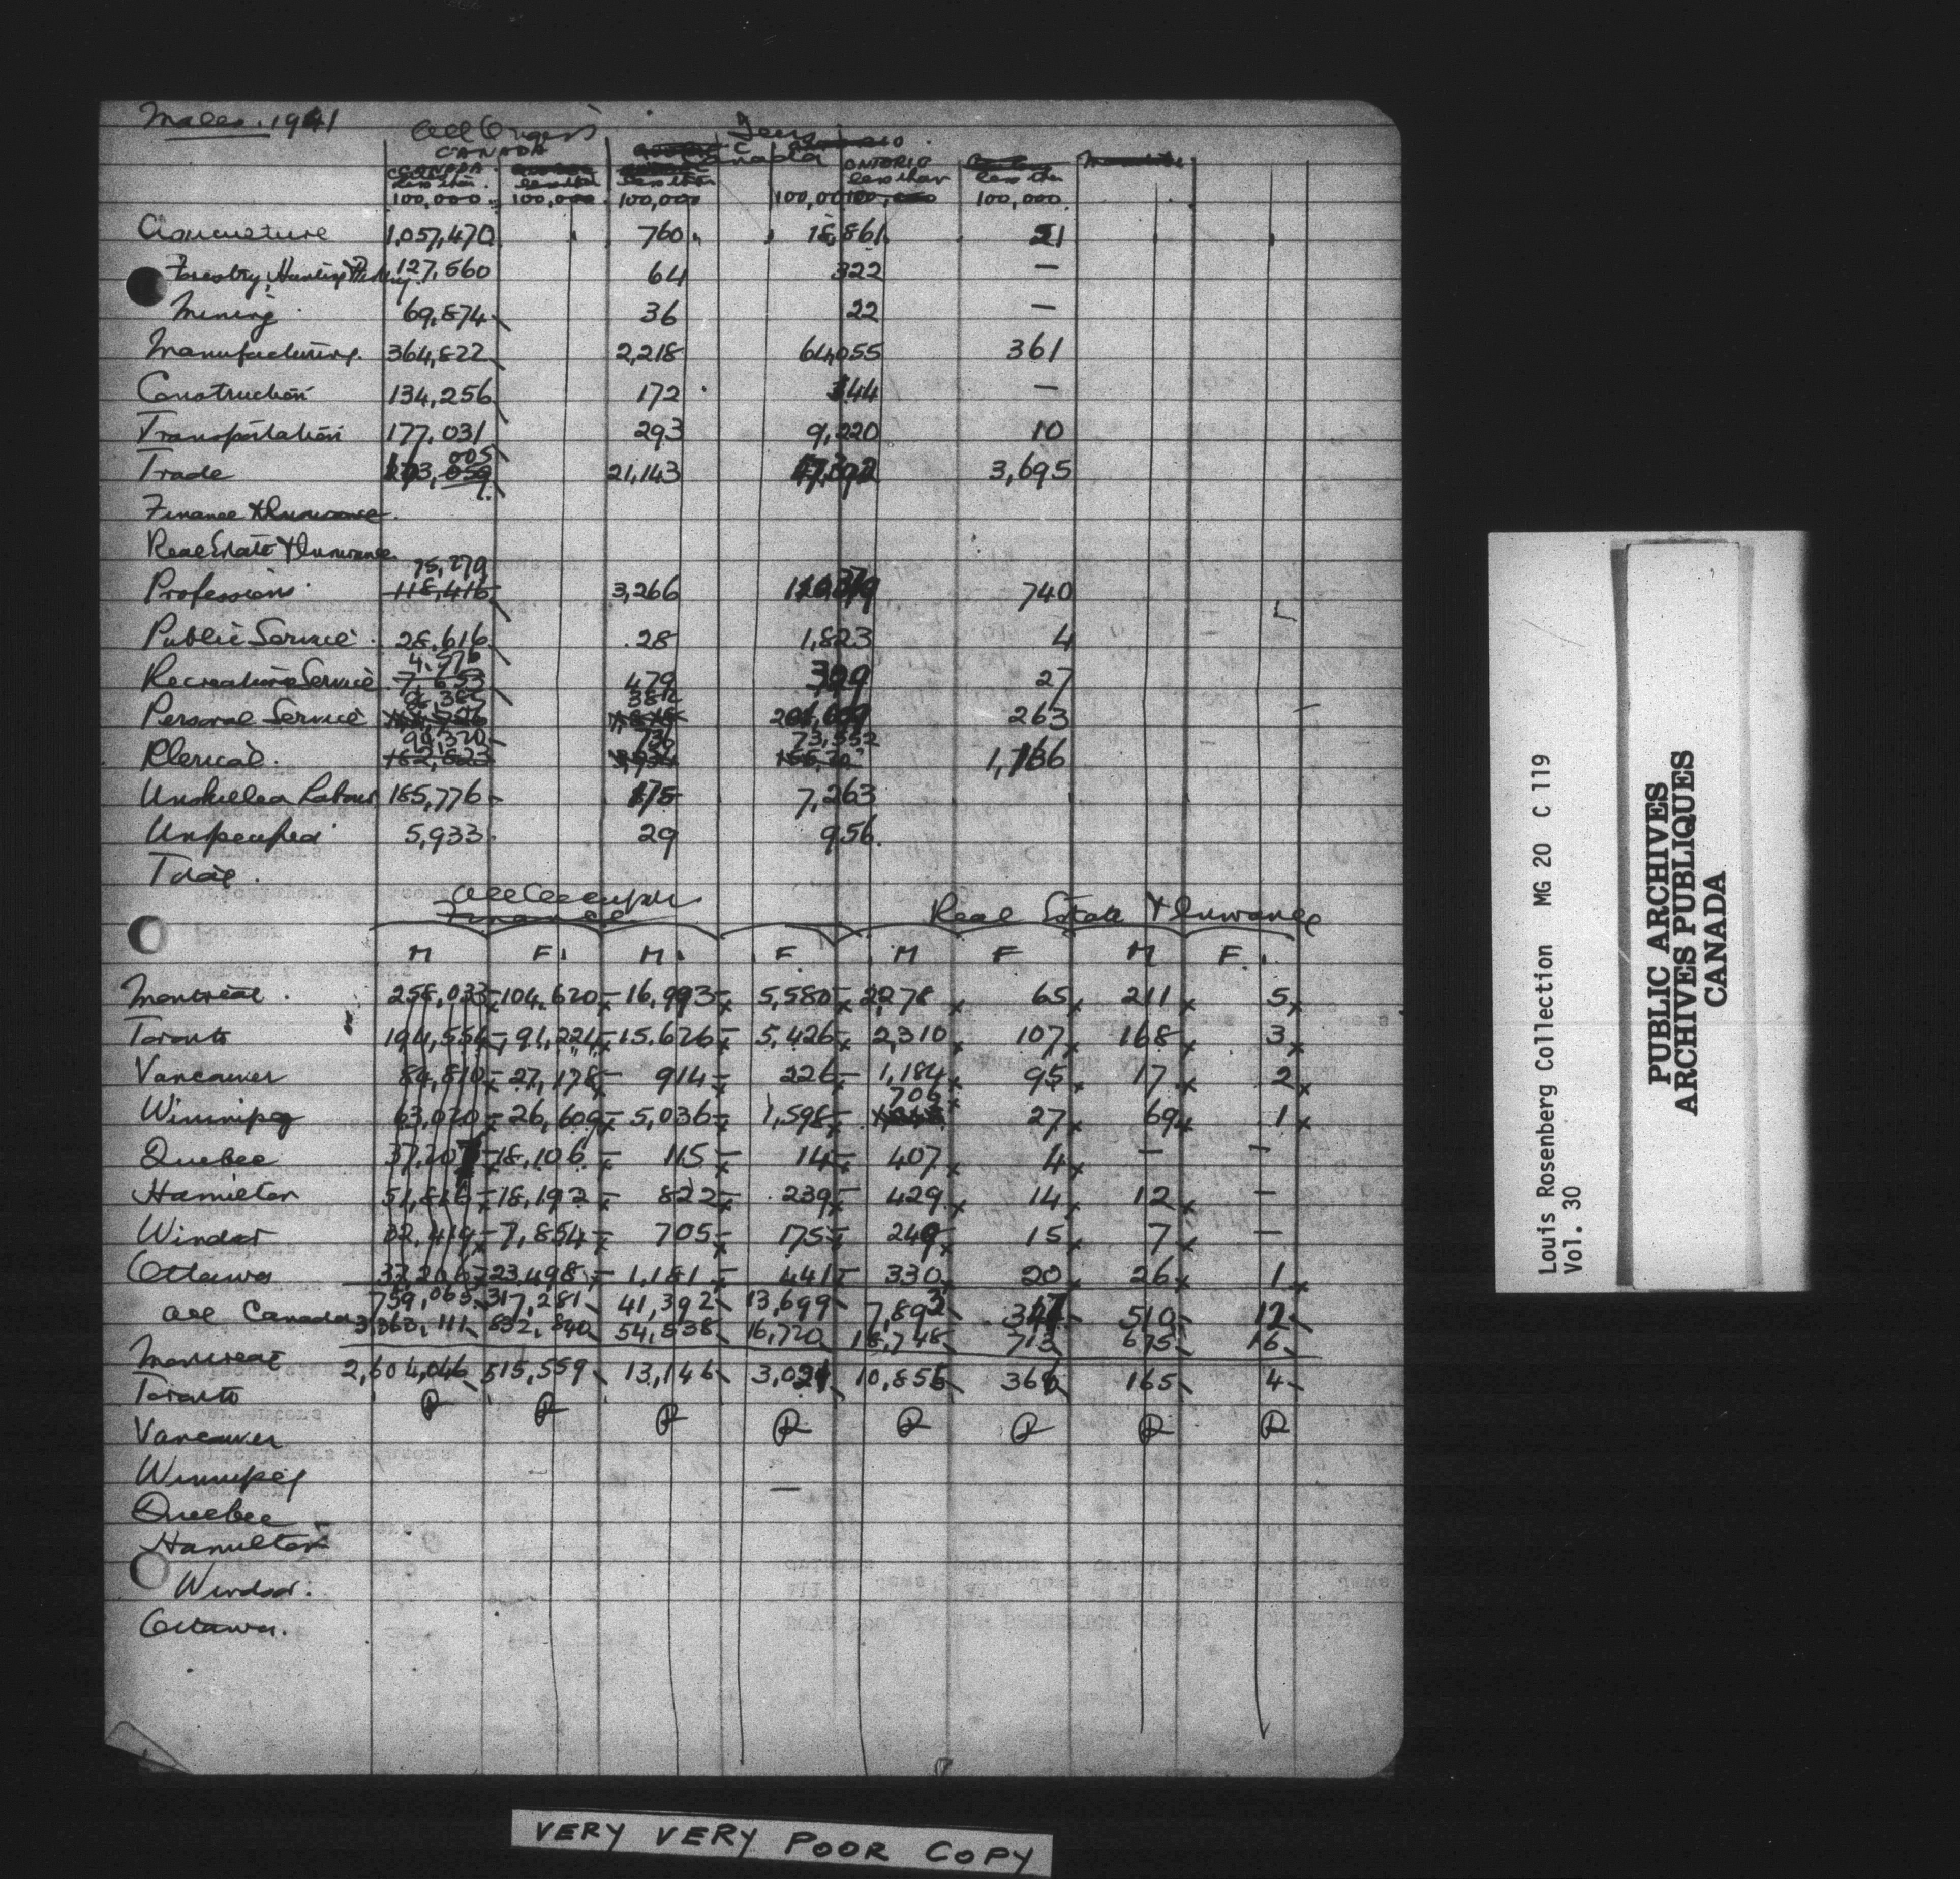 Males. 1941
All Origins Jews
CANADA Canada ONTARIO
less than less than less than less than less than
100,000 100,000 100,000 100,000 100,000 100,000
Agriculture 1,057,470 760 18,861 21
Forestry, Hunting 127,560 64 322 —
Mining 69,874 36 22 —
Manufacturing 364,822 2,218 64,055 361
Construction 134,256 172 344 —
Transportation 177,031 293 9,220 10
005
Trade 21,143 3,695
Finance & Insurance
Real Estate & Insurance
75,279
Professions 118,416 3,266 740
Public Service 28,616 28 1,823 4
4,576
Recreation Service 7,653 479 329 27
Personal Service 263
94,320 736 73,552
Clerical 182,823 1,136
Unskilled Labour 185,776 175 7,263
Unspecified 5,933 29 956
Total
All Occupns
Finance Real Estate & Insurance
M F. M. F. M F M F.
Montreal 258,033 104,620 16,993 5,580 2278 65 211 5
Toronto 194,554 91,224 15,626 5,426 2,310 107 168 3
Vancouver 84,810 27,178 914 226 1,184 95 17 2
706
Winnipeg 63,020 26,609 5,036 1,598 27 69 1
Quebec 37,207 18,106 115 14 407 4 — —
Hamilton 51,816 18,192 822 239 429 14 12 —
Windsor 32,419 7,854 705 175 249 15 7 —
Ottawa 37,206 23,498 1,181 441 330 20 26 1
759,065 317,281 41,392 13,699 7,893 347 510 12
All Canada 3,363,111 832,840 54,838 16,720 18,748 713 675 16
Montreal 2,604,046 515,559 13,146 3,021 10,855 366 165 4
Toronto
Vancouver
Winnipeg
Quebec
Hamilton
Windsor.
Ottawa.
VERY VERY POOR COPY
Louis Rosenberg Collection MG 20 C 119
Vol. 30
PUBLIC ARCHIVES
ARCHIVES PUBLIQUES
CANADA